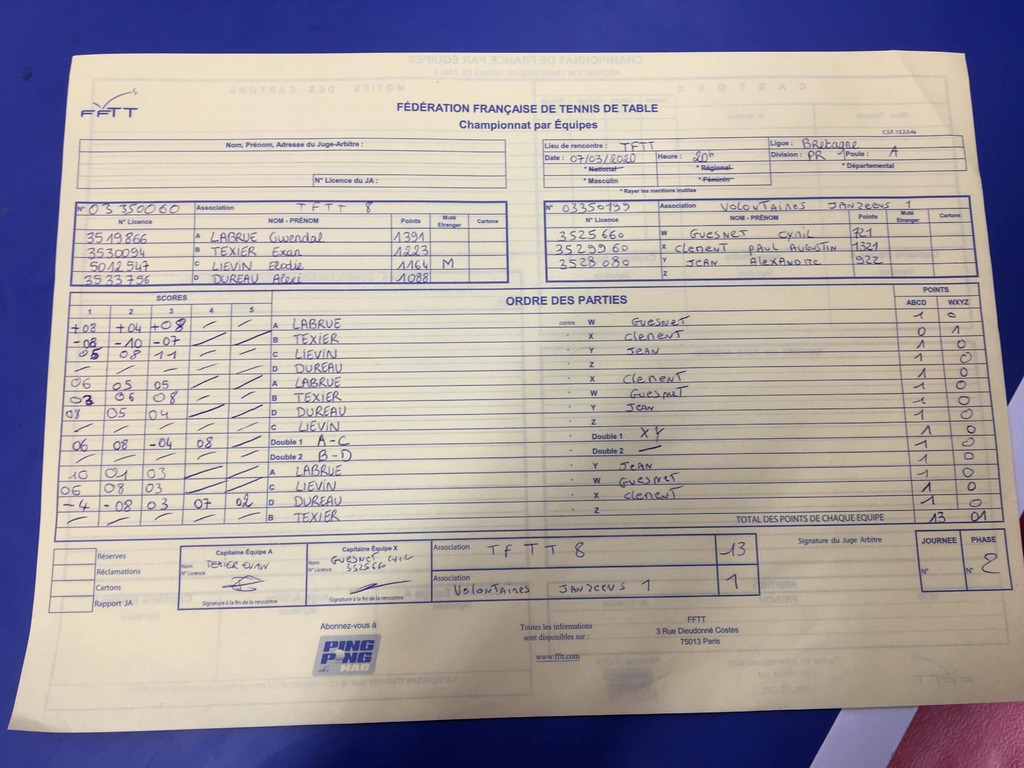 FFTT
FÉDÉRATION FRANÇAISE DE TENNIS DE TABLE
Championnat par Équipes
C.S.F. 13.2.0.4a
Nom, Prénom, Adresse du Juge-Arbitre :
N° Licence du JA :
Lieu de rencontre : TFTT
Ligue : BRetagne
Date : 07/03/2020 Heure : 20h
Division : PR Poule : A
* National * Régional * Départemental
* Masculin * Féminin
* Rayer les mentions inutiles
N° 03350060 Association TFTT 8
N° Licence NOM - PRÉNOM Points Muté Etranger Cartons
3519866 A LABRUE Gwendal 1391
3530094 B TEXIER Evan 1223
5012547 C LIEVIN Elodie 1164 M
3533756 D DUREAU Alexi 1088
N° 03350199 Association VOLONTAIRES JANZEENS 1
N° Licence NOM - PRÉNOM Points Muté Etranger Cartons
3525660 W GUESNET Cyril 721
3529960 X Clement PAUL AUGUSTIN 1321
3528080 Y JEAN AlexANdre 922
Z
SCORES ORDRE DES PARTIES POINTS
1 2 3 4 5 ABCD WXYZ
+08 +04 +08 — — A LABRUE contre W GuesNET 1 0
-08 -10 -07 B TEXIER " X Clement 0 1
05 08 11 — — C LIEVIN " Y JEAN 1 0
— — — — — D DUREAU " Z 1 0
06 05 05 — — A LABRUE " X Clement 1 0
03 06 08 — — B TEXIER " W GuesNet 1 0
08 05 04 — — D DUREAU " Y JEAN 1 0
— — — — — C LIEVIN " Z 1 0
06 08 -04 08 — Double 1 A-C " Double 1 XY 1 0
— — — — — Double 2 B-D " Double 2 — 1 0
10 01 03 — — A LABRUE " Y JEAN 1 0
06 08 03 — — C LIEVIN " W GuesNET 1 0
-4 -08 03 07 02 D DUREAU " X Clement 1 0
— — — — — B TEXIER " Z 1 0
TOTAL DES POINTS DE CHAQUE EQUIPE 13 01
Réserves
Réclamations
Cartons
Rapport JA
Capitaine Équipe A
Nom TEXIER EVAN
N° Licence
Signature à la fin de la rencontre
Capitaine Équipe X
Nom GUESNET Cyril
N° Licence 352566
Signature à la fin de la rencontre
Association TFTT 8 13
Association VOLONTAIRES JANZEENS 1 1
Signature du Juge Arbitre
JOURNEE PHASE
N° N° 2
Abonnez-vous à
PING PONG MAG
Toutes les informations
sont disponibles sur :
www.fftt.com
FFTT
3 Rue Dieudonné Costes
75013 Paris